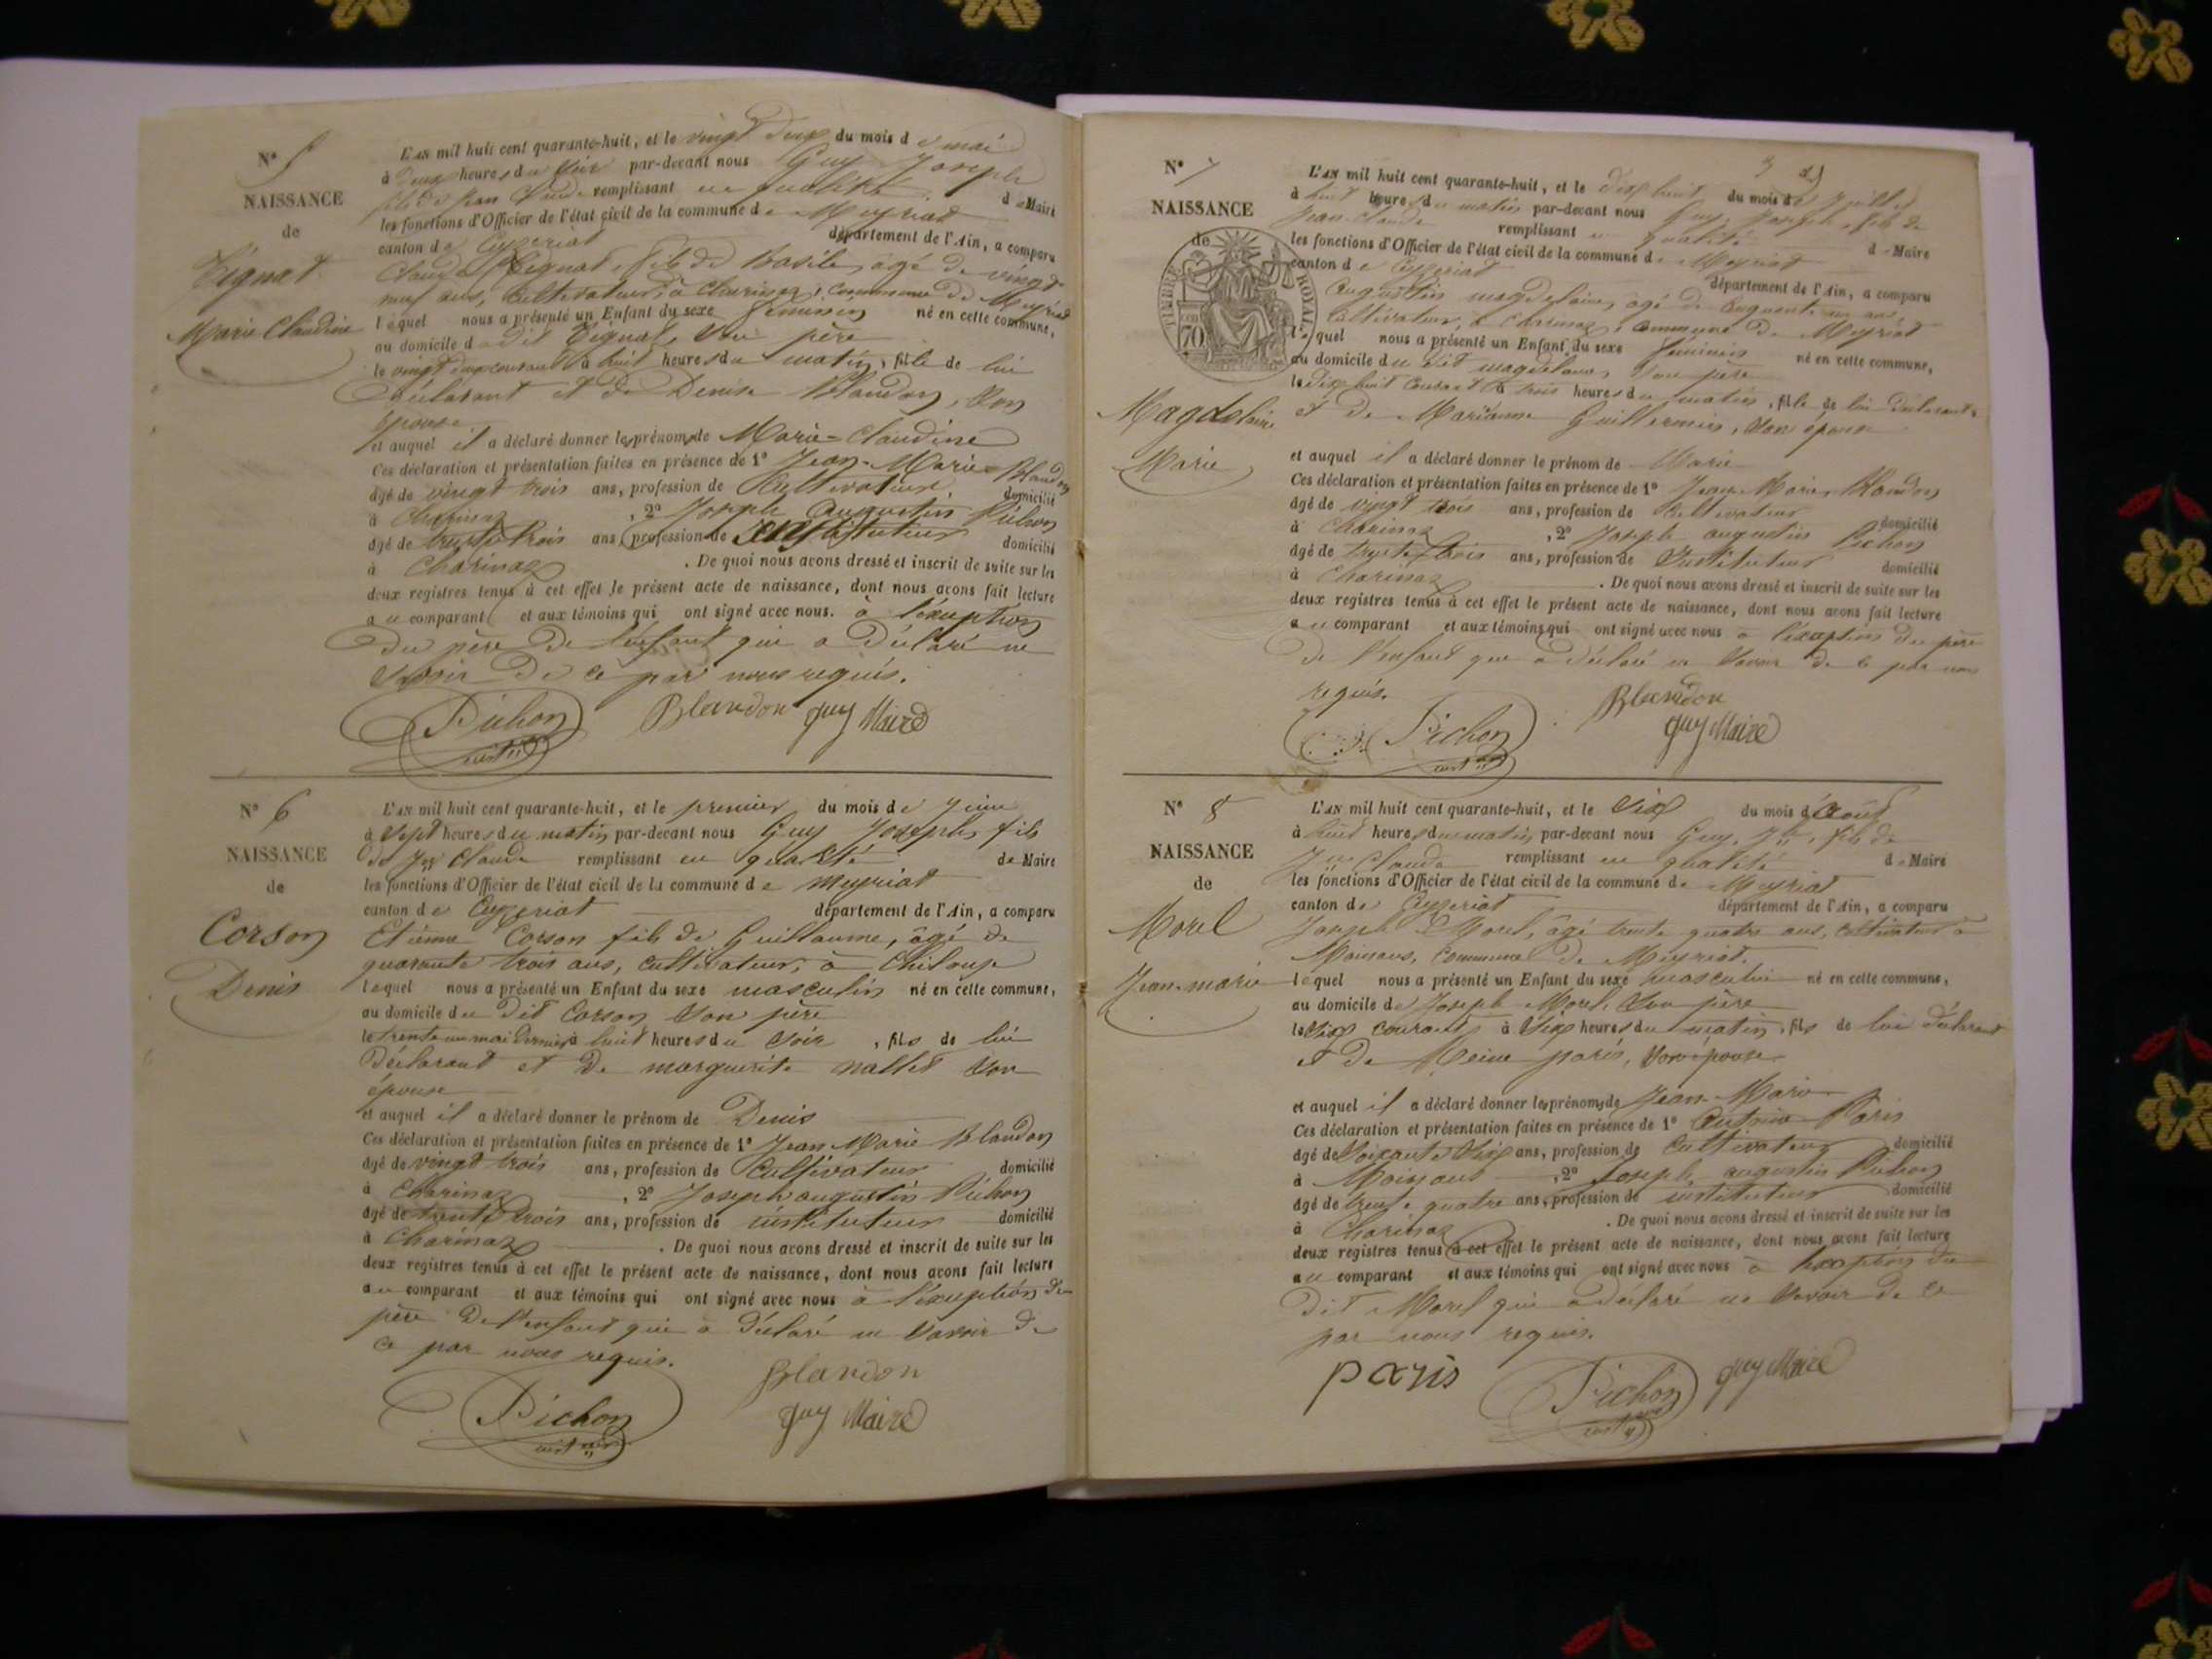 N° 5
NAISSANCE
de
Tignat
Marie Claudine
L'AN mil huit cent quarante-huit, et le vingt deux du mois de mai
à deux heures du soir par-devant nous Guy Joseph
fils de Jean Claude remplissant en qualité de Maire
les fonctions d'Officier de l'état civil de la commune de Meyriat
canton de Ceyzeriat département de l'Ain, a comparu
Claude Tignat, fils de Basile, âgé de vingt
neuf ans, cultivateur, à Charinaz, commune de Meyriat
lequel nous a présenté un Enfant du sexe féminin né en cette commune,
au domicile dudit Tignat, son père
le vingt deux courant à huit heures du matin, fille de lui
déclarant et de Denise Blandon, son
épouse
et auquel il a déclaré donner les prénoms de Marie-Claudine
Ces déclaration et présentation faites en présence de 1° Jean-Marie Blandon
âgé de vingt trois ans, profession de Cultivateur, domicilié
à Charinaz, 2° Joseph Augustin Pichon
âgé de trente trois ans, profession de instituteur domicilié
à Charinaz. De quoi nous avons dressé et inscrit de suite sur les
deux registres tenus à cet effet le présent acte de naissance, dont nous avons fait lecture
au comparant et aux témoins qui ont signé avec nous. à l'exception
du père de l'enfant qui a déclaré ne
savoir de ce par nous requis.
Pichon Blandon guy Maire
instr
N° 6
NAISSANCE
de
Corson
Denis
L'AN mil huit cent quarante-huit, et le premier du mois de Juin
à sept heures du matin par-devant nous Guy Joseph, fils
de Jn Claude remplissant en qualité de Maire
les fonctions d'Officier de l'état civil de la commune de Meyriat
canton de Ceyzeriat département de l'Ain, a comparu
Etienne Corson fils de Guillaume, âgé de
quarante trois ans, cultivateur, à Chiloup
lequel nous a présenté un Enfant du sexe masculin né en cette commune,
au domicile du dit Corson son père
le trente un mai dernier à huit heures du soir, fils de lui
déclarant et de marguerite nallet son
épouse
et auquel il a déclaré donner le prénom de Denis
Ces déclaration et présentation faites en présence de 1° Jean Marie Blandon
âgé de vingt trois ans, profession de Cultivateur domicilié
à Charinaz, 2° Joseph augustin Pichon
âgé de trente trois ans, profession de instituteur domicilié
à Charinaz. De quoi nous avons dressé et inscrit de suite sur les
deux registres tenus à cet effet le présent acte de naissance, dont nous avons fait lecture
au comparant et aux témoins qui ont signé avec nous à l'exception du
père de l'enfant qui a déclaré ne savoir de
ce par nous requis.
Pichon Blandon
instr guy Maire
3
N° 7
NAISSANCE
de
TIMBRE ROYAL
70
Magdelaine
Marie
L'AN mil huit cent quarante-huit, et le dix huit du mois de Juillet
à huit heures du matin par-devant nous Guy, Joseph, fils de
Jean-Claude remplissant en qualité de Maire
les fonctions d'Officier de l'état civil de la commune de Meyriat
canton de Ceyzeriat département de l'Ain, a comparu
Augustin magdelaine, âgé de cinquante un ans,
Cultivateur, à Charinaz, commune de Meyriat
lequel nous a présenté un Enfant du sexe féminin né en cette commune,
au domicile du dit magdelaine, son père
le dix huit courant à trois heures du matin, fille de lui déclarant,
et de Marianne Guillermin, son épouse
et auquel il a déclaré donner le prénom de Marie
Ces déclaration et présentation faites en présence de 1° Jean-Marie Blandon
âgé de vingt trois ans, profession de Cultivateur domicilié
à Charinaz, 2° Joseph augustin Pichon
âgé de trente trois ans, profession de Instituteur domicilié
à Charinaz. De quoi nous avons dressé et inscrit de suite sur les
deux registres tenus à cet effet le présent acte de naissance, dont nous avons fait lecture
au comparant et aux témoins qui ont signé avec nous à l'exception du père
de l'enfant qui a déclaré ne savoir de ce par nous
requis.
Pichon Blandon
instr guy Maire
N° 8
NAISSANCE
de
Morel
Jean-marie
L'AN mil huit cent quarante-huit, et le six du mois d'Août
à huit heures du matin par-devant nous Guy, Jph, fils de
Jn Claude remplissant en qualité de Maire
les fonctions d'Officier de l'état civil de la commune de Meyriat
canton de Ceyzeriat département de l'Ain, a comparu
Joseph Morel, âgé trente quatre ans, cultivateur à
Moinans, commune de Meyriat.
lequel nous a présenté un Enfant du sexe masculin né en cette commune,
au domicile de Joseph Morel, son père
le six courant, à six heures du matin, fils de lui déclarant
et de Reine paris, son épouse
et auquel il a déclaré donner les prénoms de Jean-Marie
Ces déclaration et présentation faites en présence de 1° Antoine Paris
âgé de soixante six ans, profession de Cultivateur domicilié
à Moinans, 2° Joseph augustin Pichon
âgé de trente quatre ans, profession de instituteur domicilié
à Charinaz. De quoi nous avons dressé et inscrit de suite sur les
deux registres tenus à cet effet le présent acte de naissance, dont nous avons fait lecture
au comparant et aux témoins qui ont signé avec nous à l'exception du
dit Morel qui a déclaré ne savoir de ce
par nous requis.
paris Pichon guy Maire
instr